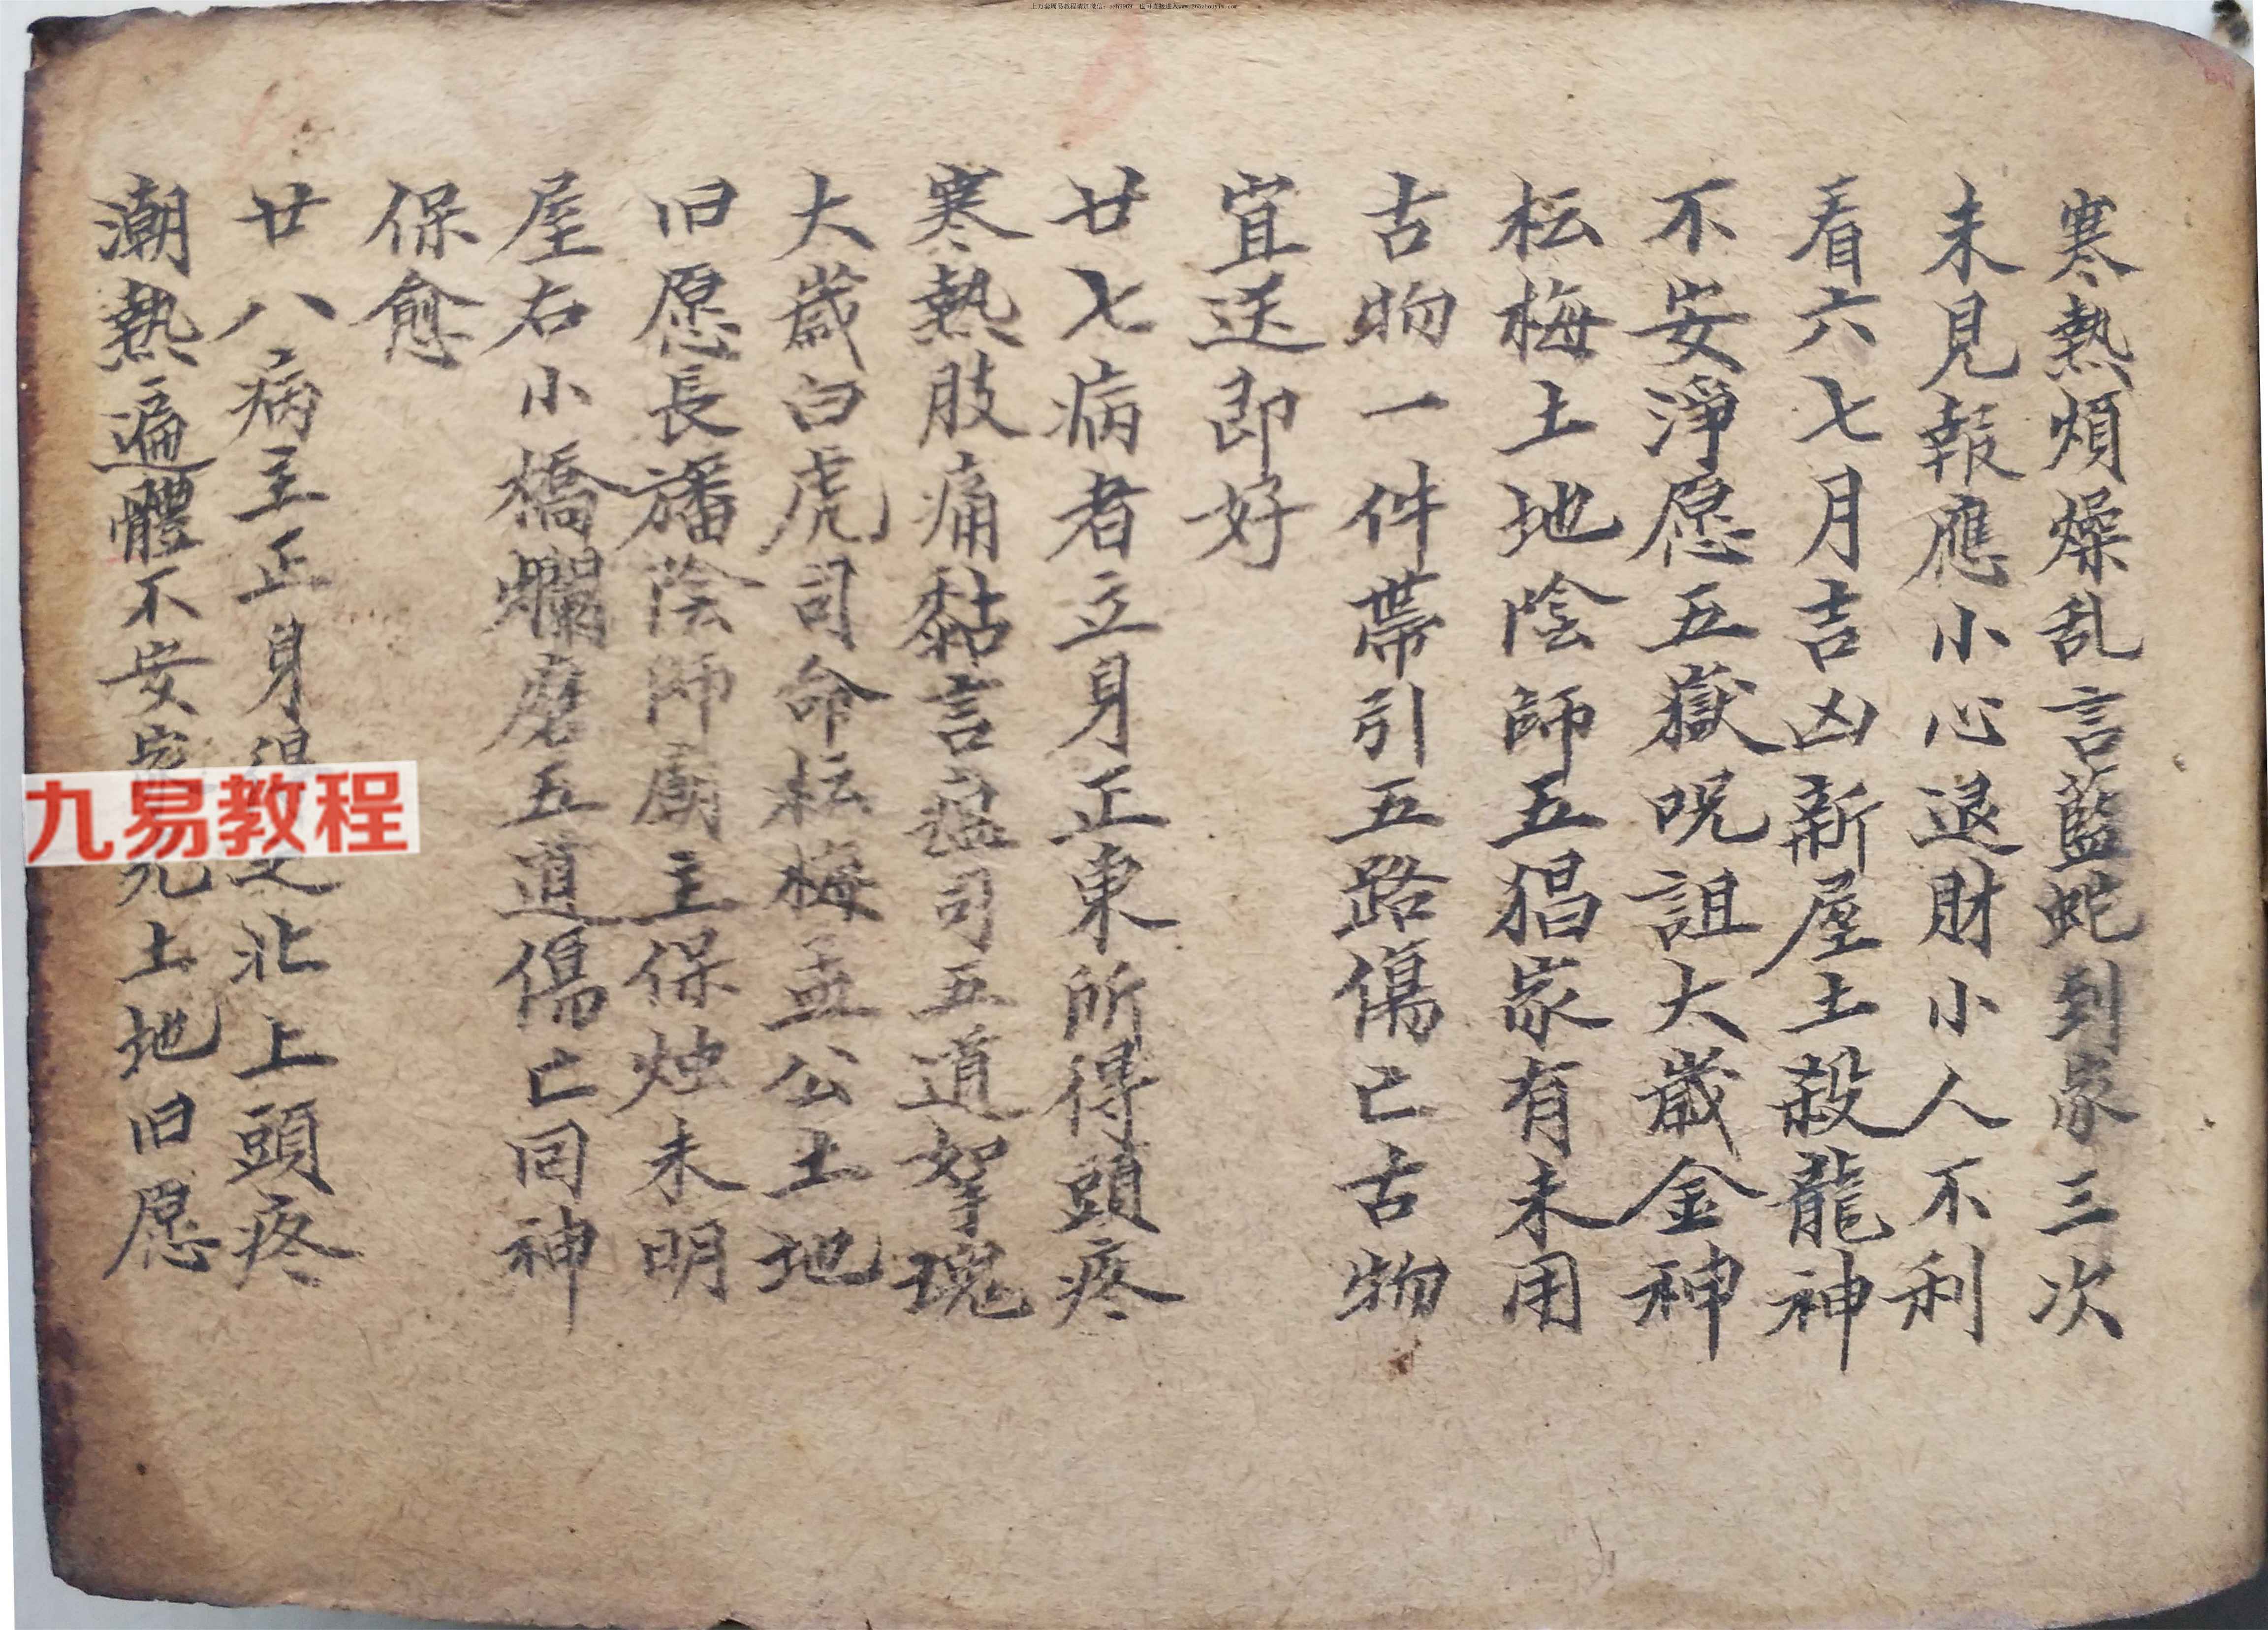 寒熱煩燥乱言藍蛇到家三次
未見報應小心退財小人不利
看六七月吉凶新屋土殺龍神
不安淨愿五嶽呪詛大歲金神
枟梅土地陰師五猖家有未用
古物一件帶引五路傷亡古物
宜送即好
廿七病者立身正東所得頭疼
寒熱肢痛黏言瘟司五道拏魂
大歲白虎司命枟梅盂公土地
旧愿長旛陰師廟主保烛未明
屋右小橋爛磨五道傷亡同神
保愈
廿八病主正身得之北上頭疼
潮熱遍體不安土地旧愿
九易教程